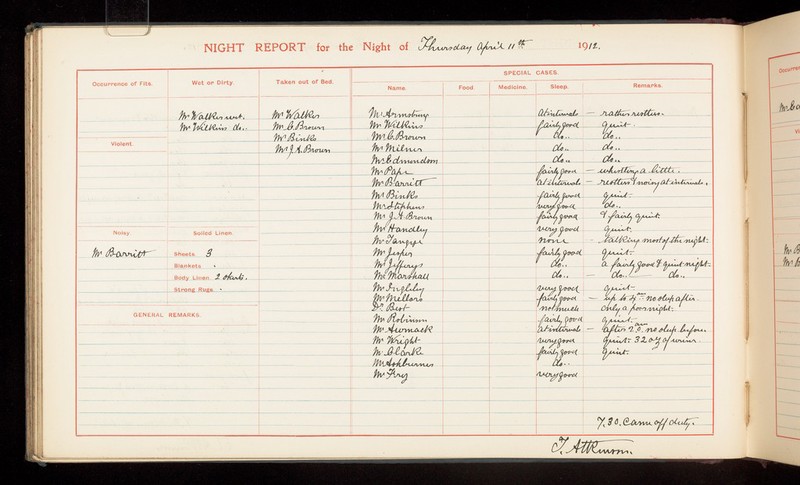 NIGHT REPORT for the Night of Thursday April 11th 1912.
SPECIAL CASES.
Occurrence of Fits. Wet or Dirty. Taken out of Bed. Name. Food Medicine. Sleep. Remarks.
Mr Walker wet. Mr Walker Mr Armstrong At intervals — rather restless.
Mr Wilkins do.. Mr C. Brown Mr Wilkins Fairly good quiet.
Mr Binks Mr C. Brown do.. do..
Violent. Mr J.A. Brown Mr Milner do.. do..
Mr Edmundson do.. do..
Mr Pape fairly good — whistling a little.
Mr Barritt at intervals — restless & noisy at intervals.
Mr Binks fairly good quiet.
Mr Stephens very good do..
Mr J.A. Brown fairly good & fairly quiet.
Mr Handley very good quiet.
Noisy. Soiled Linen. Mr Tangye none talking most of the night.
Mr Barritt Sheets. 3 Mr Jesper fairly good quiet.
Blankets. Mr Jefferys do.. a fairly good & quiet night.
Body Linen. 2 shirts. Mr Marshall do.. do.. do..
Strong Rugs. Mr very good quiet.
Mr Mellors fairly good — up to no sleep after.
GENERAL REMARKS. Dr not much only a poor night.
Mr Robinson fairly good quiet.
Mr Atintervals — after 2 am no sleep before.
Mr Wright very good quiet. 32 oz of urine.
Mr Clark fairly good quiet.
Mr Ashburner do..
Mr Fry very good
7.30. Came off duty.
T. Atkinson.